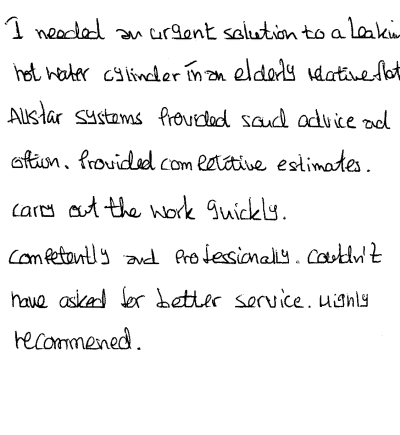 I needed an urgent solution to a leakin
hot water cylinder in an elderly relative flat
Allstar systems Provided saud advice ad
oftion. Provided competitive estimates.
carry out the work quickly.
competently and Professionally. Couldn't
have asked for better service. Highly
recommened.